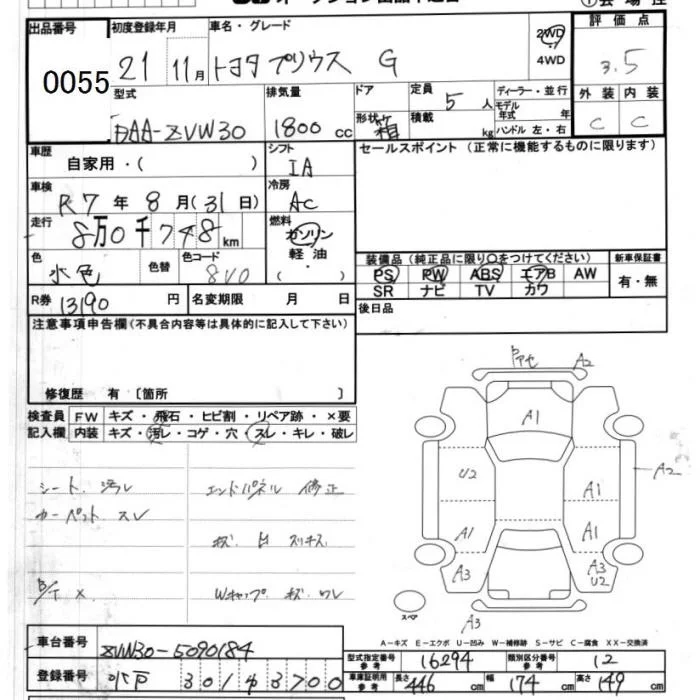 出品番号
0055
初度登録年月
21 11月
車名・グレード
トヨタ プリウス G
2WD
4WD
評価点
3.5
外装 内装
C C
型式
DAA-ZVW30
排気量
1800 cc
ドア
形状
箱
定員
5 人
積載
kg
ディーラー・並行
モデル
年式 年
ハンドル 左・右
車歴
自家用・( )
シフト
IA
セールスポイント (正常に機能するものに限ります)
車検
R7年8月(31日)
冷房
AC
走行
8万0千748km
燃料
ガソリン
軽油
・( )
色
水色
色替
色コード
8V0
装備品 (純正品に限り○をつけてください)
PS PW ABS エアB AW
SR ナビ TV カワ
新車保証書
有・無
R券 13190 円
名変期限 月 日
後日品
注意事項申告欄(不具合内容等は具体的に記入して下さい)
修復歴 有 〔箇所 〕
検査員
記入欄
FW キズ・飛石・ヒビ割・リペア跡・×要
内装 キズ・汚レ・コゲ・穴・スレ・キレ・破レ
シート 汚レ
カーペット スレ
エンドパネル 修正
B/T ×
Wキャップ キズ ワレ
A2
A1
U2
A1
A2
A1
A1
A3
A3
U2
スペア
A3
A-キズ E-エクボ U-凹み W-補修跡 S-サビ C-腐食 XX-交換済
車台番号
ZVW30-5090184
登録番号
水戸 301 ち 3700
型式指定番号
参考
16294
類別区分番号
参考
12
車庫証明用
参考
長さ 446 cm
幅 174 cm
高さ 149 cm